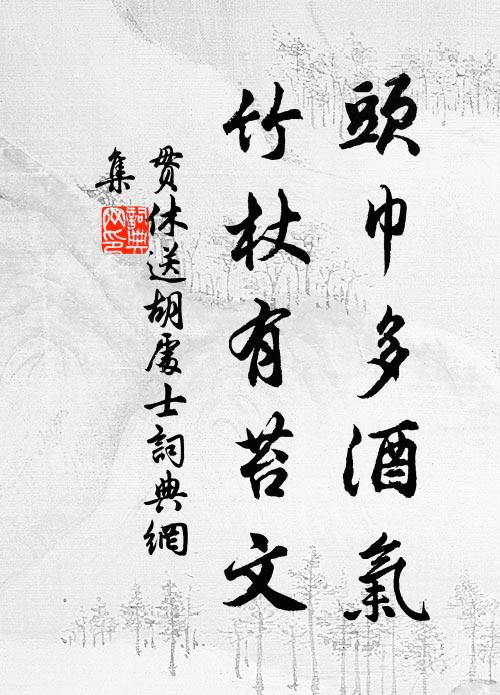 頭巾多酒氣
竹杖有苔文
貫休送胡處士詞典網
集
詞典
网印